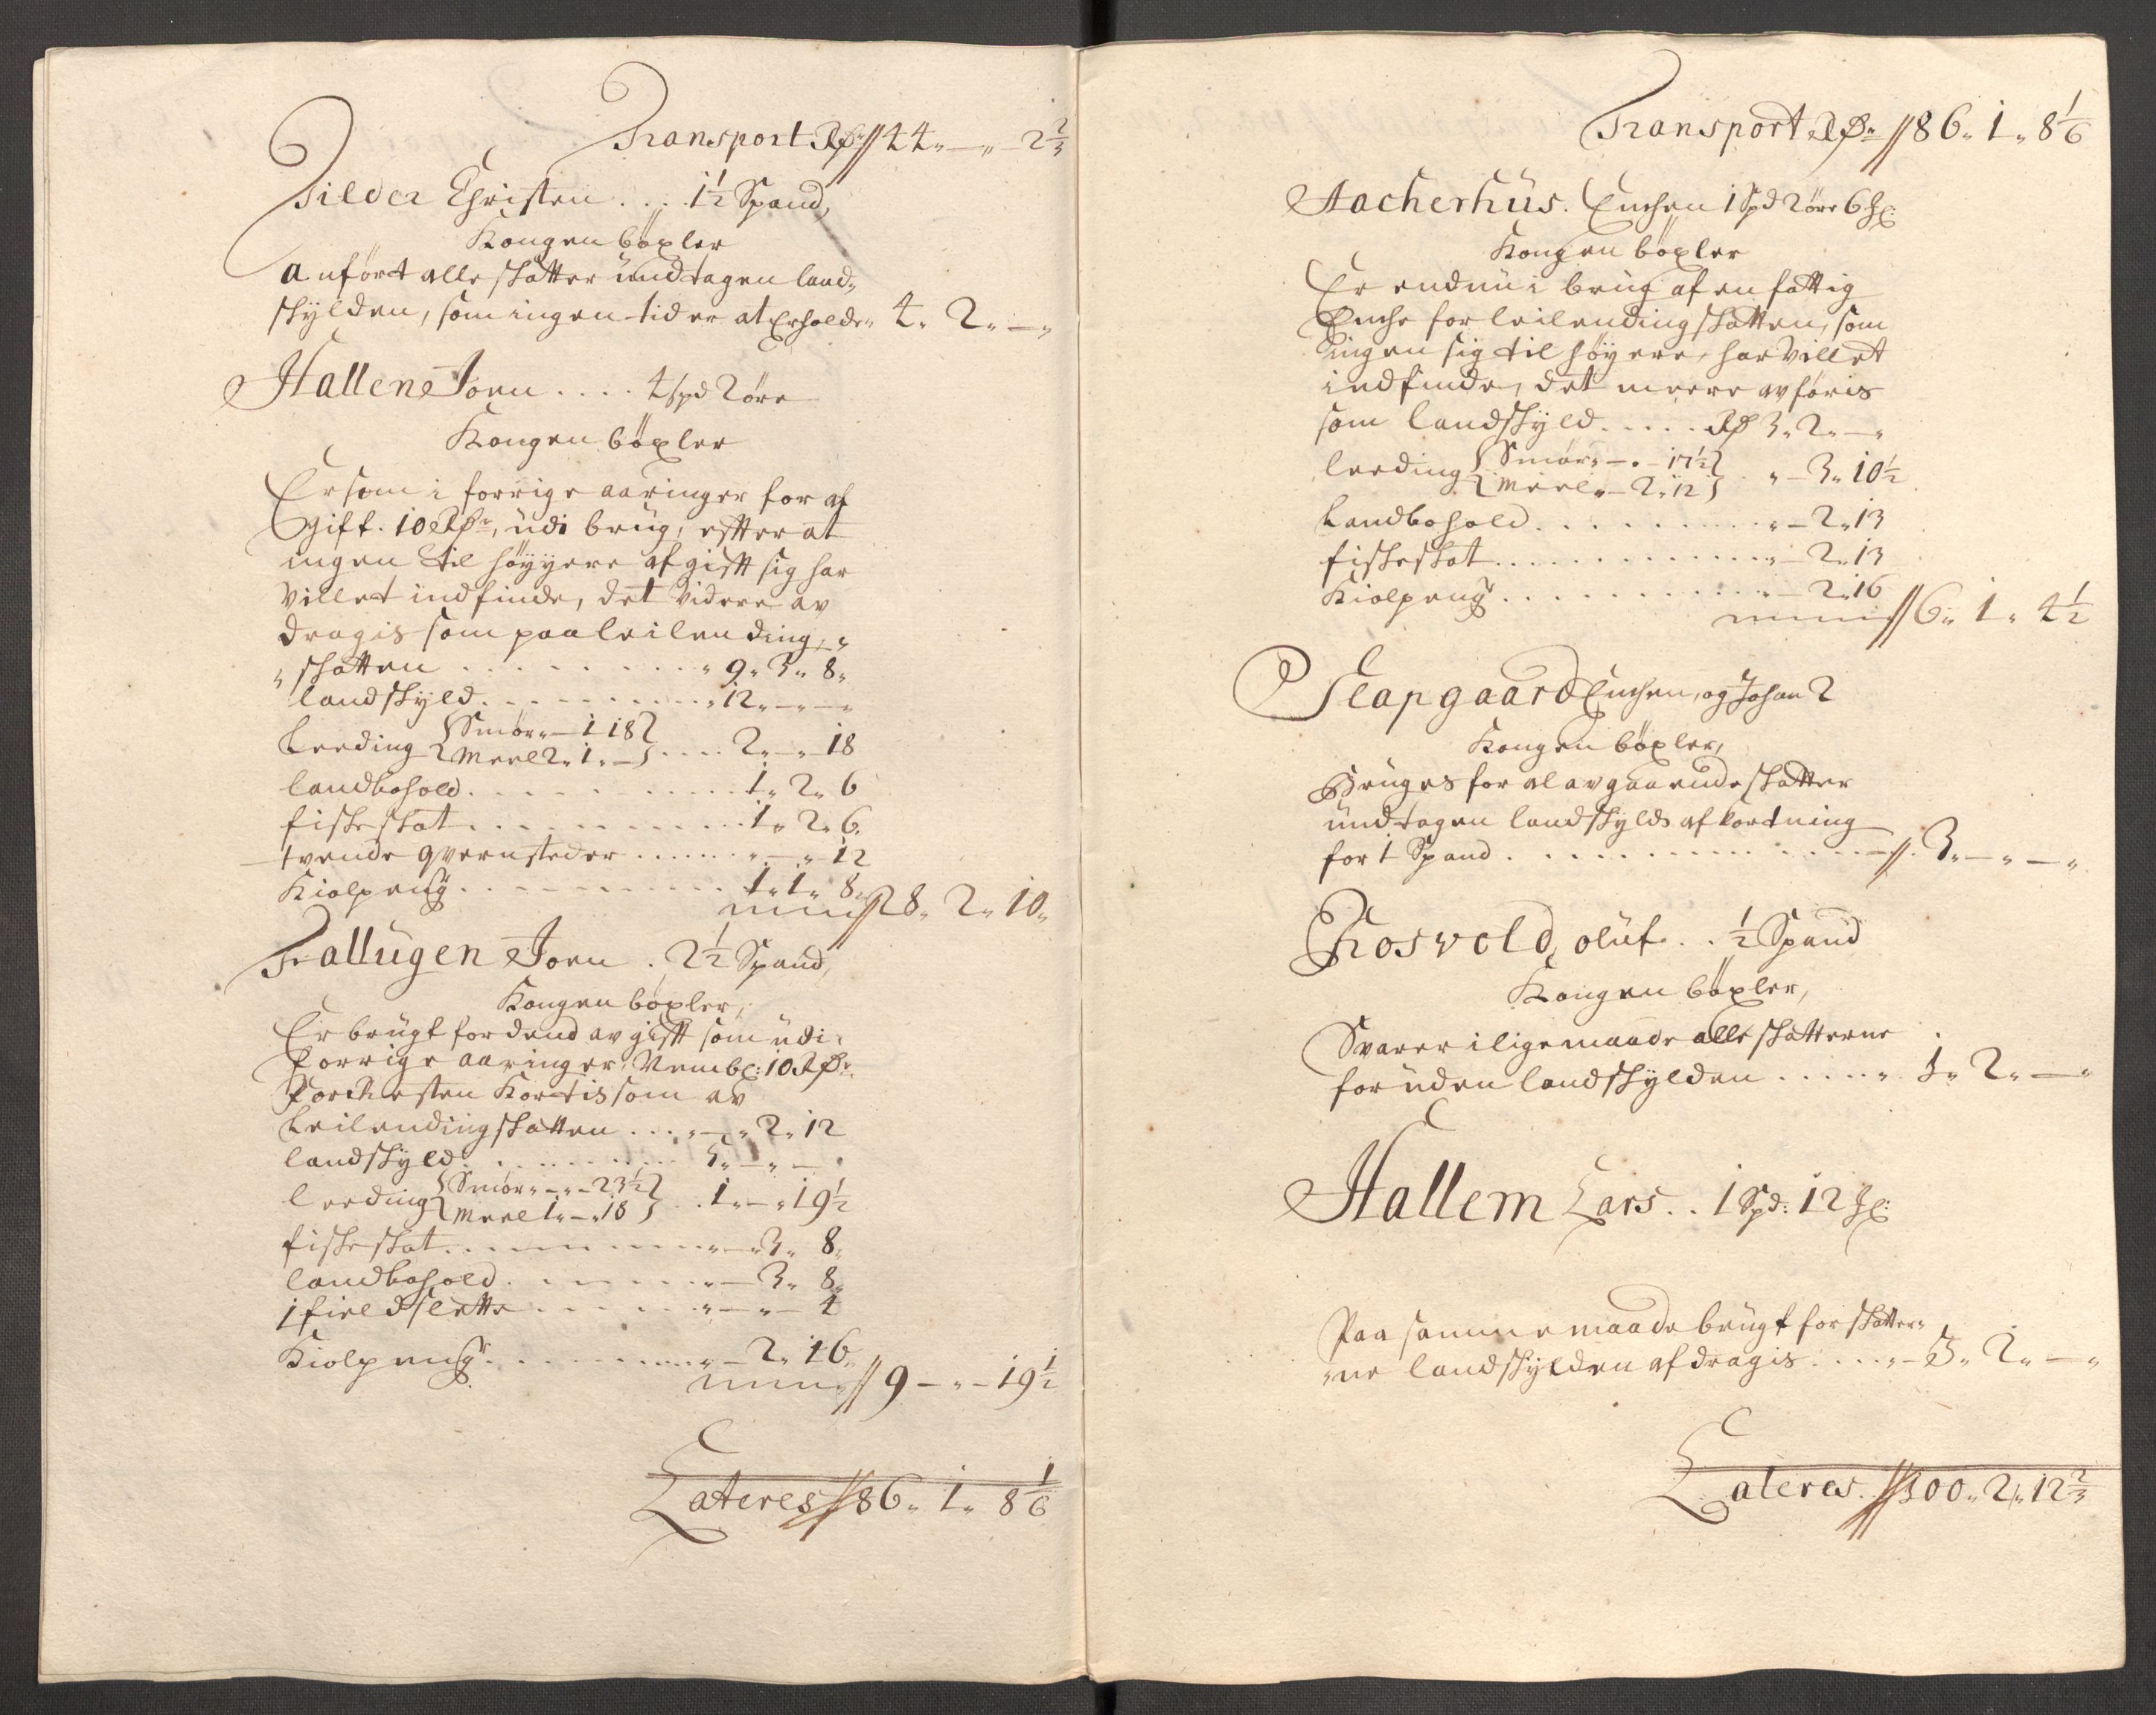 Transport Rdr // 44 „ — „ 2 2/3
Tilder Christen . . . 1½ Spand,
Kongen böxler
Anfört alle skatter undtagen land„
skylden, som ingen tid er at Erholde „ 4 „ 2 „ — „
Hallen Joen . . . . 4 spd 2 öre
Kongen böxler
Er som i forrige aaringer for af
Gift. 10 Rdr, udi brug, efter at
ingen til höyyere afgift sig har
villet indfinde, det videre av
dragis som paa leilending „
„ skatten . . . . . . . . . „ 9 „ 3 „ 8 „
landskyld . . . . . . . . „ 12 „ — „ — „
Leeding { Smör „ — 1 18 }
{ Meel 2 „ 1 „ — } . . . . 2 „ — „ 18
landbohold . . . . . . . . . 1 „ 2 „ 6
fiskeskat . . . . . . . . . . 1 „ 2 „ 6
tvende qvernsteder . . . . . . „ — „ 12
Kiolpeng . . . . . . . . . 1 „ 1 „ 8 „
// 28 „ 2 „ 10 „
Fallugen Joen . 2½ Spand,
Kongen böxler,
Er brugt for dend avgift som udi
forrige aaringer, Nembl: 10 Rdr.
Kortis som av
Leilendingskatten . . . „ — „ 2 „ 12
landskyld . . . . . . . . . 5 „ — „ —
leeding { Smör „ — „ — 23½ }
{ Meel 1 „ — „ 18 } . . 1 „ — „ 19½
fiskeskat . . . . . . . . . „ — 3 „ 8 „
landbohold . . . . . . . „ — 3 „ 8 „
1 field slette . . . . . . „ — „ — 4
Kiolpeng . . . . . . . . . „ — 2 „ 16 „
// 9 — „ — 19½
Lateres // 86 „ 1 „ 8 1/6
Transport Rdr // 86 „ 1 „ 8 1/6
Aacherhus. Enchen 1 Spd 2 öre 6 ₰l:
Kongen böxler
Er endnu i brug af en fattig
Enche for leilendingskatten, som
ingen sig til höyere, har villet
indfinde, det meere avföris
som landskyld . . . . . Rdr 3 „ 2 „ — „
leeding { Smör „ — „ — 17½ }
{ Meel „ — 2 „ 12 } . „ — 3 „ 10½
Landbohold . . . . . . . . . . „ — 2 „ 13
fiskeskat . . . . . . . . . . . . „ — 2 „ 13
Kiolpeng . . . . . . . . . . . „ — 2 „ 16
// 6 „ 1 „ 4½
Slapgaard Enchen, og Johan 2
Kongen böxler,
Bruges for al avgaaende skatter
undtagen landskylds afkortning
for 1 Spand . . . . . . . . . . . . . — // 3 „ — „ — „
Rosvold, oluf . . ½ Spand
Kongen böxler,
Svarer i lige maade alle skatterne
foruden landskylden . . . . . „ 1 „ 2 „ — „
Hallem Lars . . 1 Spd: 12 ₰l:
Paa samme maade brugt for skatter„
„ne landskylden afdragis . . . . „ 3 „ 2 „ — „
Lateres. // 100 „ 2 „ 12 2/3